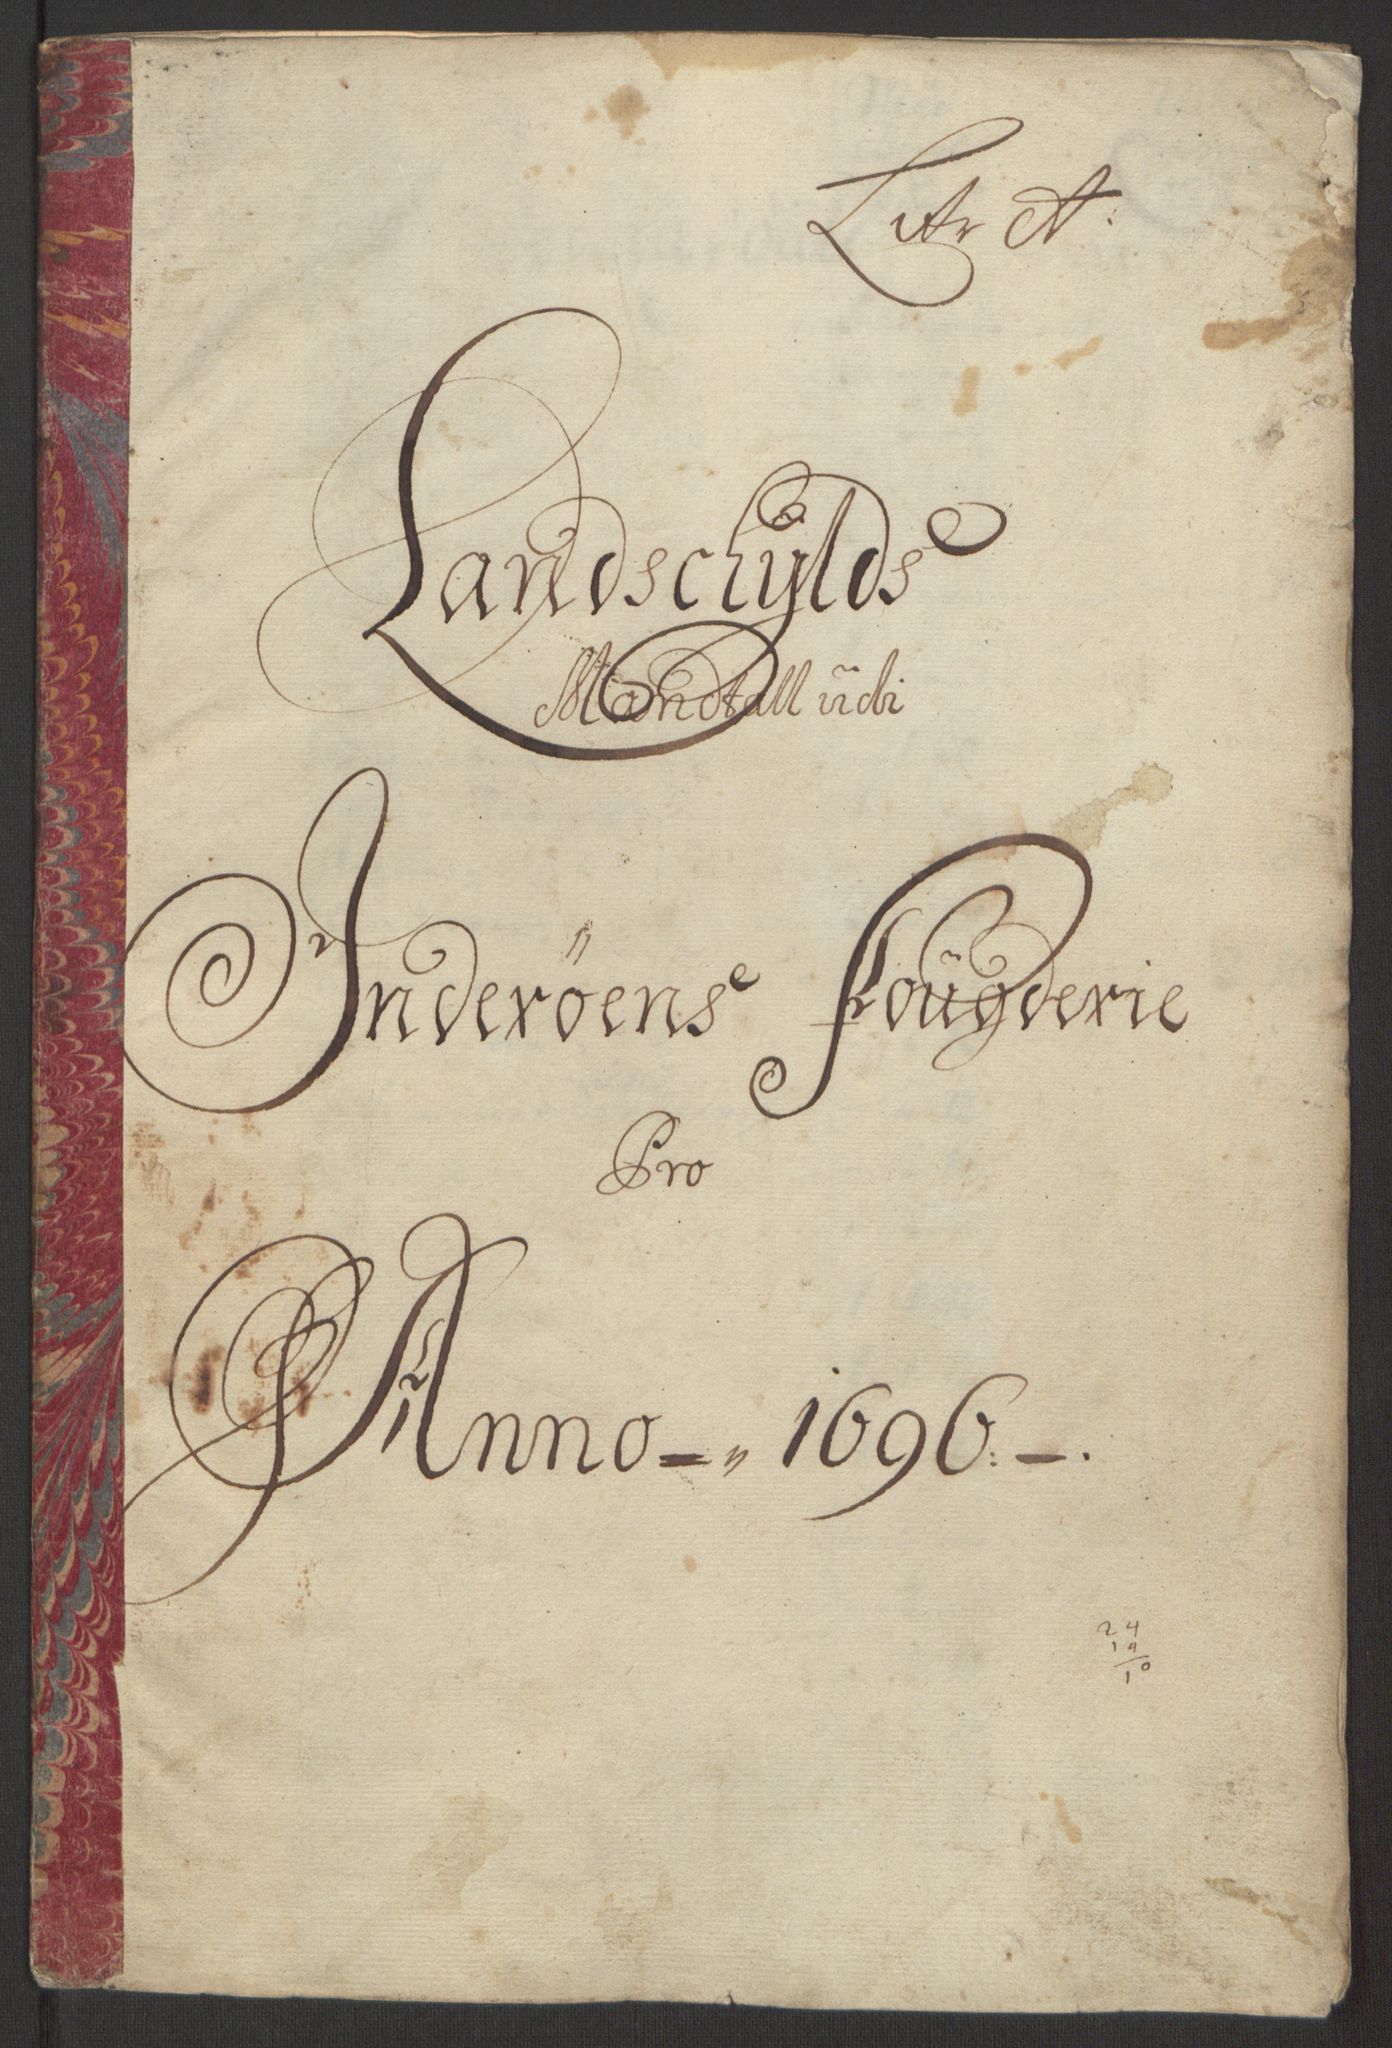 Litr A:
Landschylds
Mandtall udi
Inderøens Fougderie
Pro
Anno 1696.
24
14
10